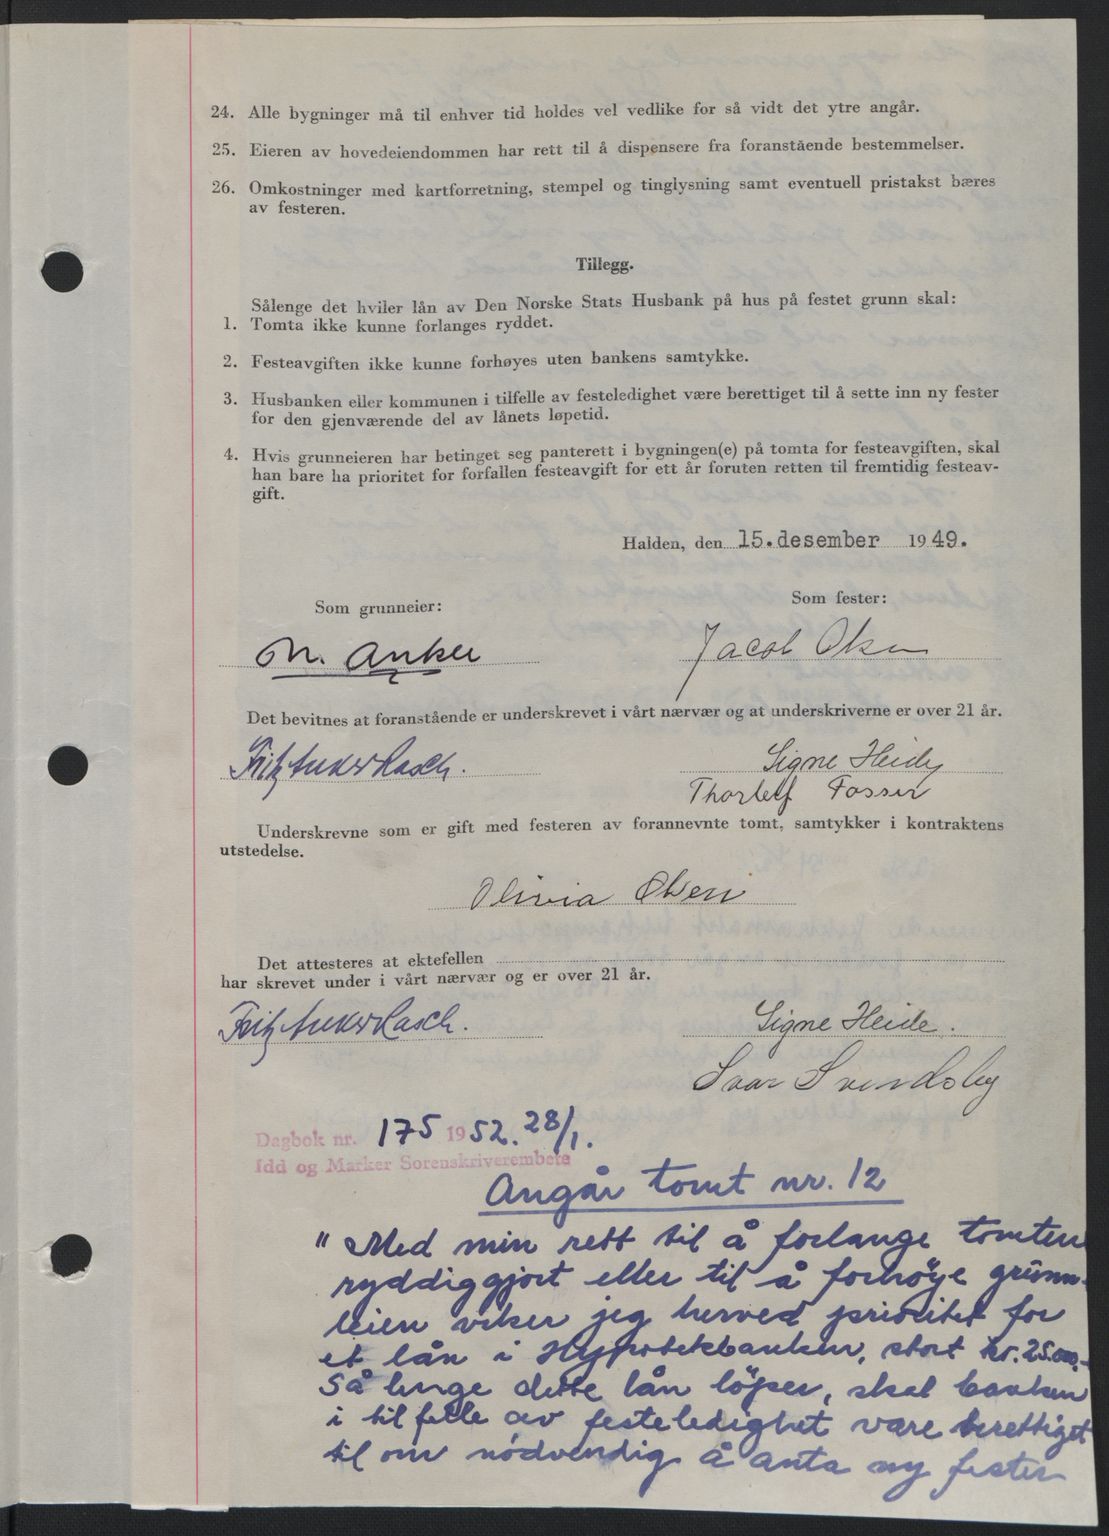 24. Alle bygninger må til enhver tid holdes vel vedlike for så vidt det ytre angår.
25. Eieren av hovedeiendommen har rett til å dispensere fra foranstående bestemmelser.
26. Omkostninger med kartforretning, stempel og tinglysning samt eventuell pristakst bæres
av festeren.
Tillegg.
Sålenge det hviler lån av Den Norske Stats Husbank på hus på festet grunn skal:
1. Tomta ikke kunne forlanges ryddet.
2. Festeavgiften ikke kunne forhøyes uten bankens samtykke.
3. Husbanken eller kommunen i tilfelle av festeledighet være berettiget til å sette inn ny fester
for den gjenværende del av lånets løpetid.
4. Hvis grunneieren har betinget seg panterett i bygningen(e) på tomta for festeavgiften, skal
han bare ha prioritet for forfallen festeavgift for ett år foruten retten til fremtidig festeav-
gift.
Halden, den 15. desember 1949.
Som grunneier: Som fester:
N. Anker Jacob Olsen
Det bevitnes at foranstående er underskrevet i vårt nærvær og at underskriverne er over 21 år.
Fritz Anker Rasch. Signe Heide
Thorleif Fosser
Underskrevne som er gift med festeren av forannevnte tomt, samtykker i kontraktens
utstedelse.
Olivia Olsen
Det attesteres at ektefellen
har skrevet under i vårt nærvær og er over 21 år.
Fritz Anker Rasch. Signe Heide.
Ivar Svendsby
Dagbok nr. 175 1952. 28/1.
Idd og Marker Sorenskriverembete
Angår tomt nr. 12
" Med min rett til å forlange tomten
ryddiggjort eller til å forhøye grunn-
leien viker jeg herved prioritet for
et lån i Hypotekbanken, stort kr. 25.000,-
Så lenge dette lån löper, skal banken
i tilfelle av festeledighet være berettiget
til om nödvendig å anta ny fester